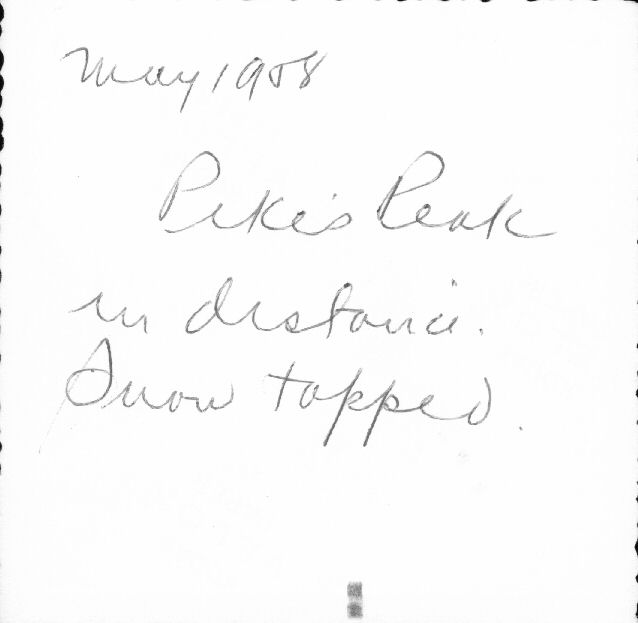 May 1958
Pike's Peak
in distance.
Snow topped.